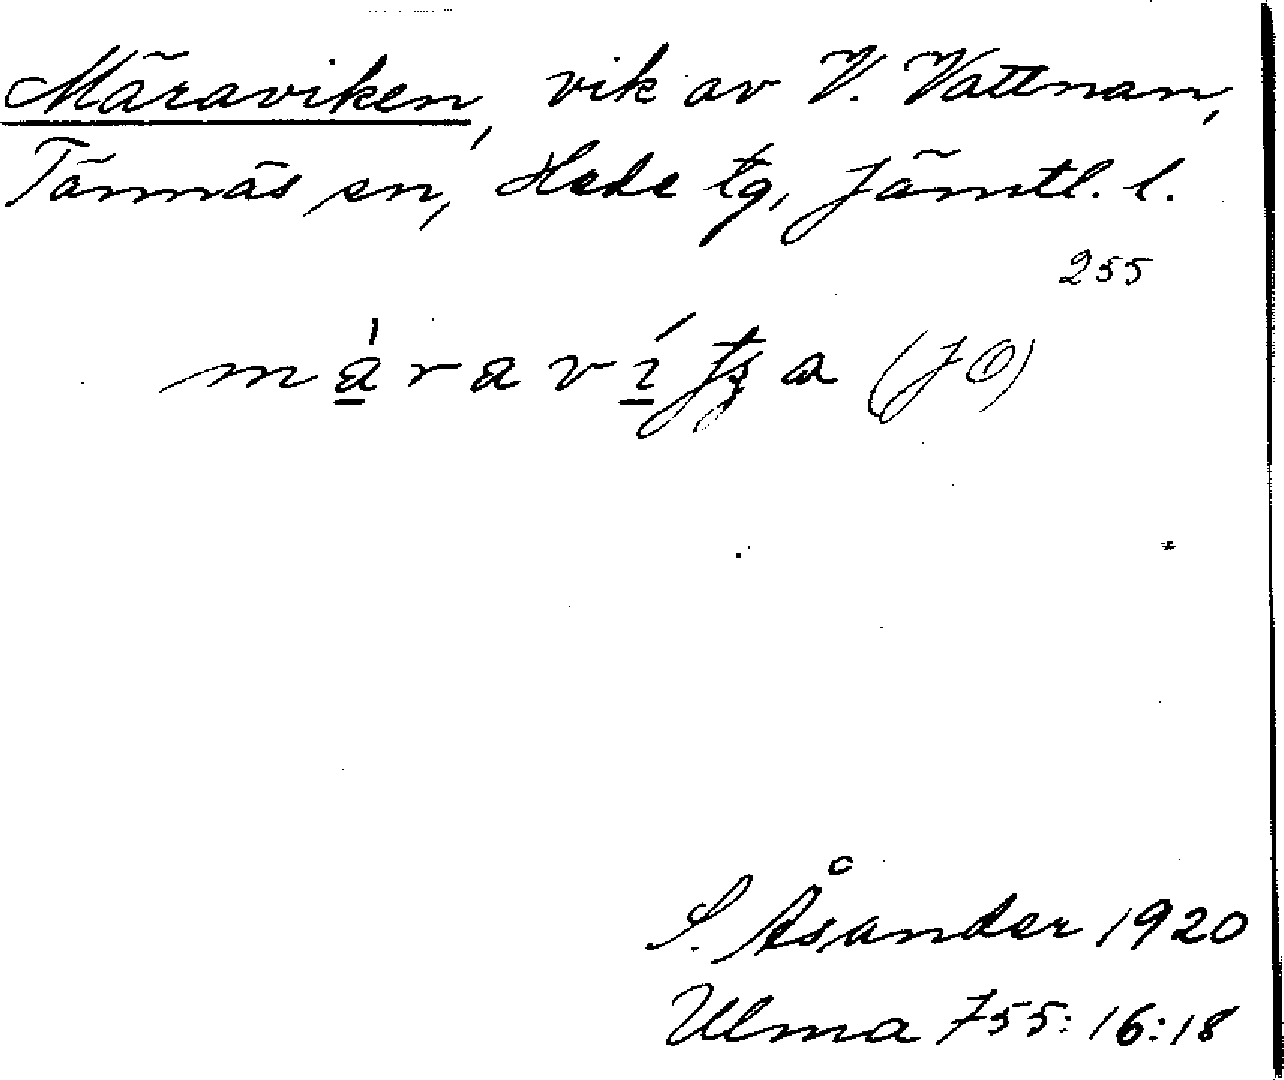 Märaviken, vik av V. Vattnan,
Tännäs sn, Hede tg, Jämtl. l.
255
(JO)
S. Åsander 1920
Ulma 755: 16:18